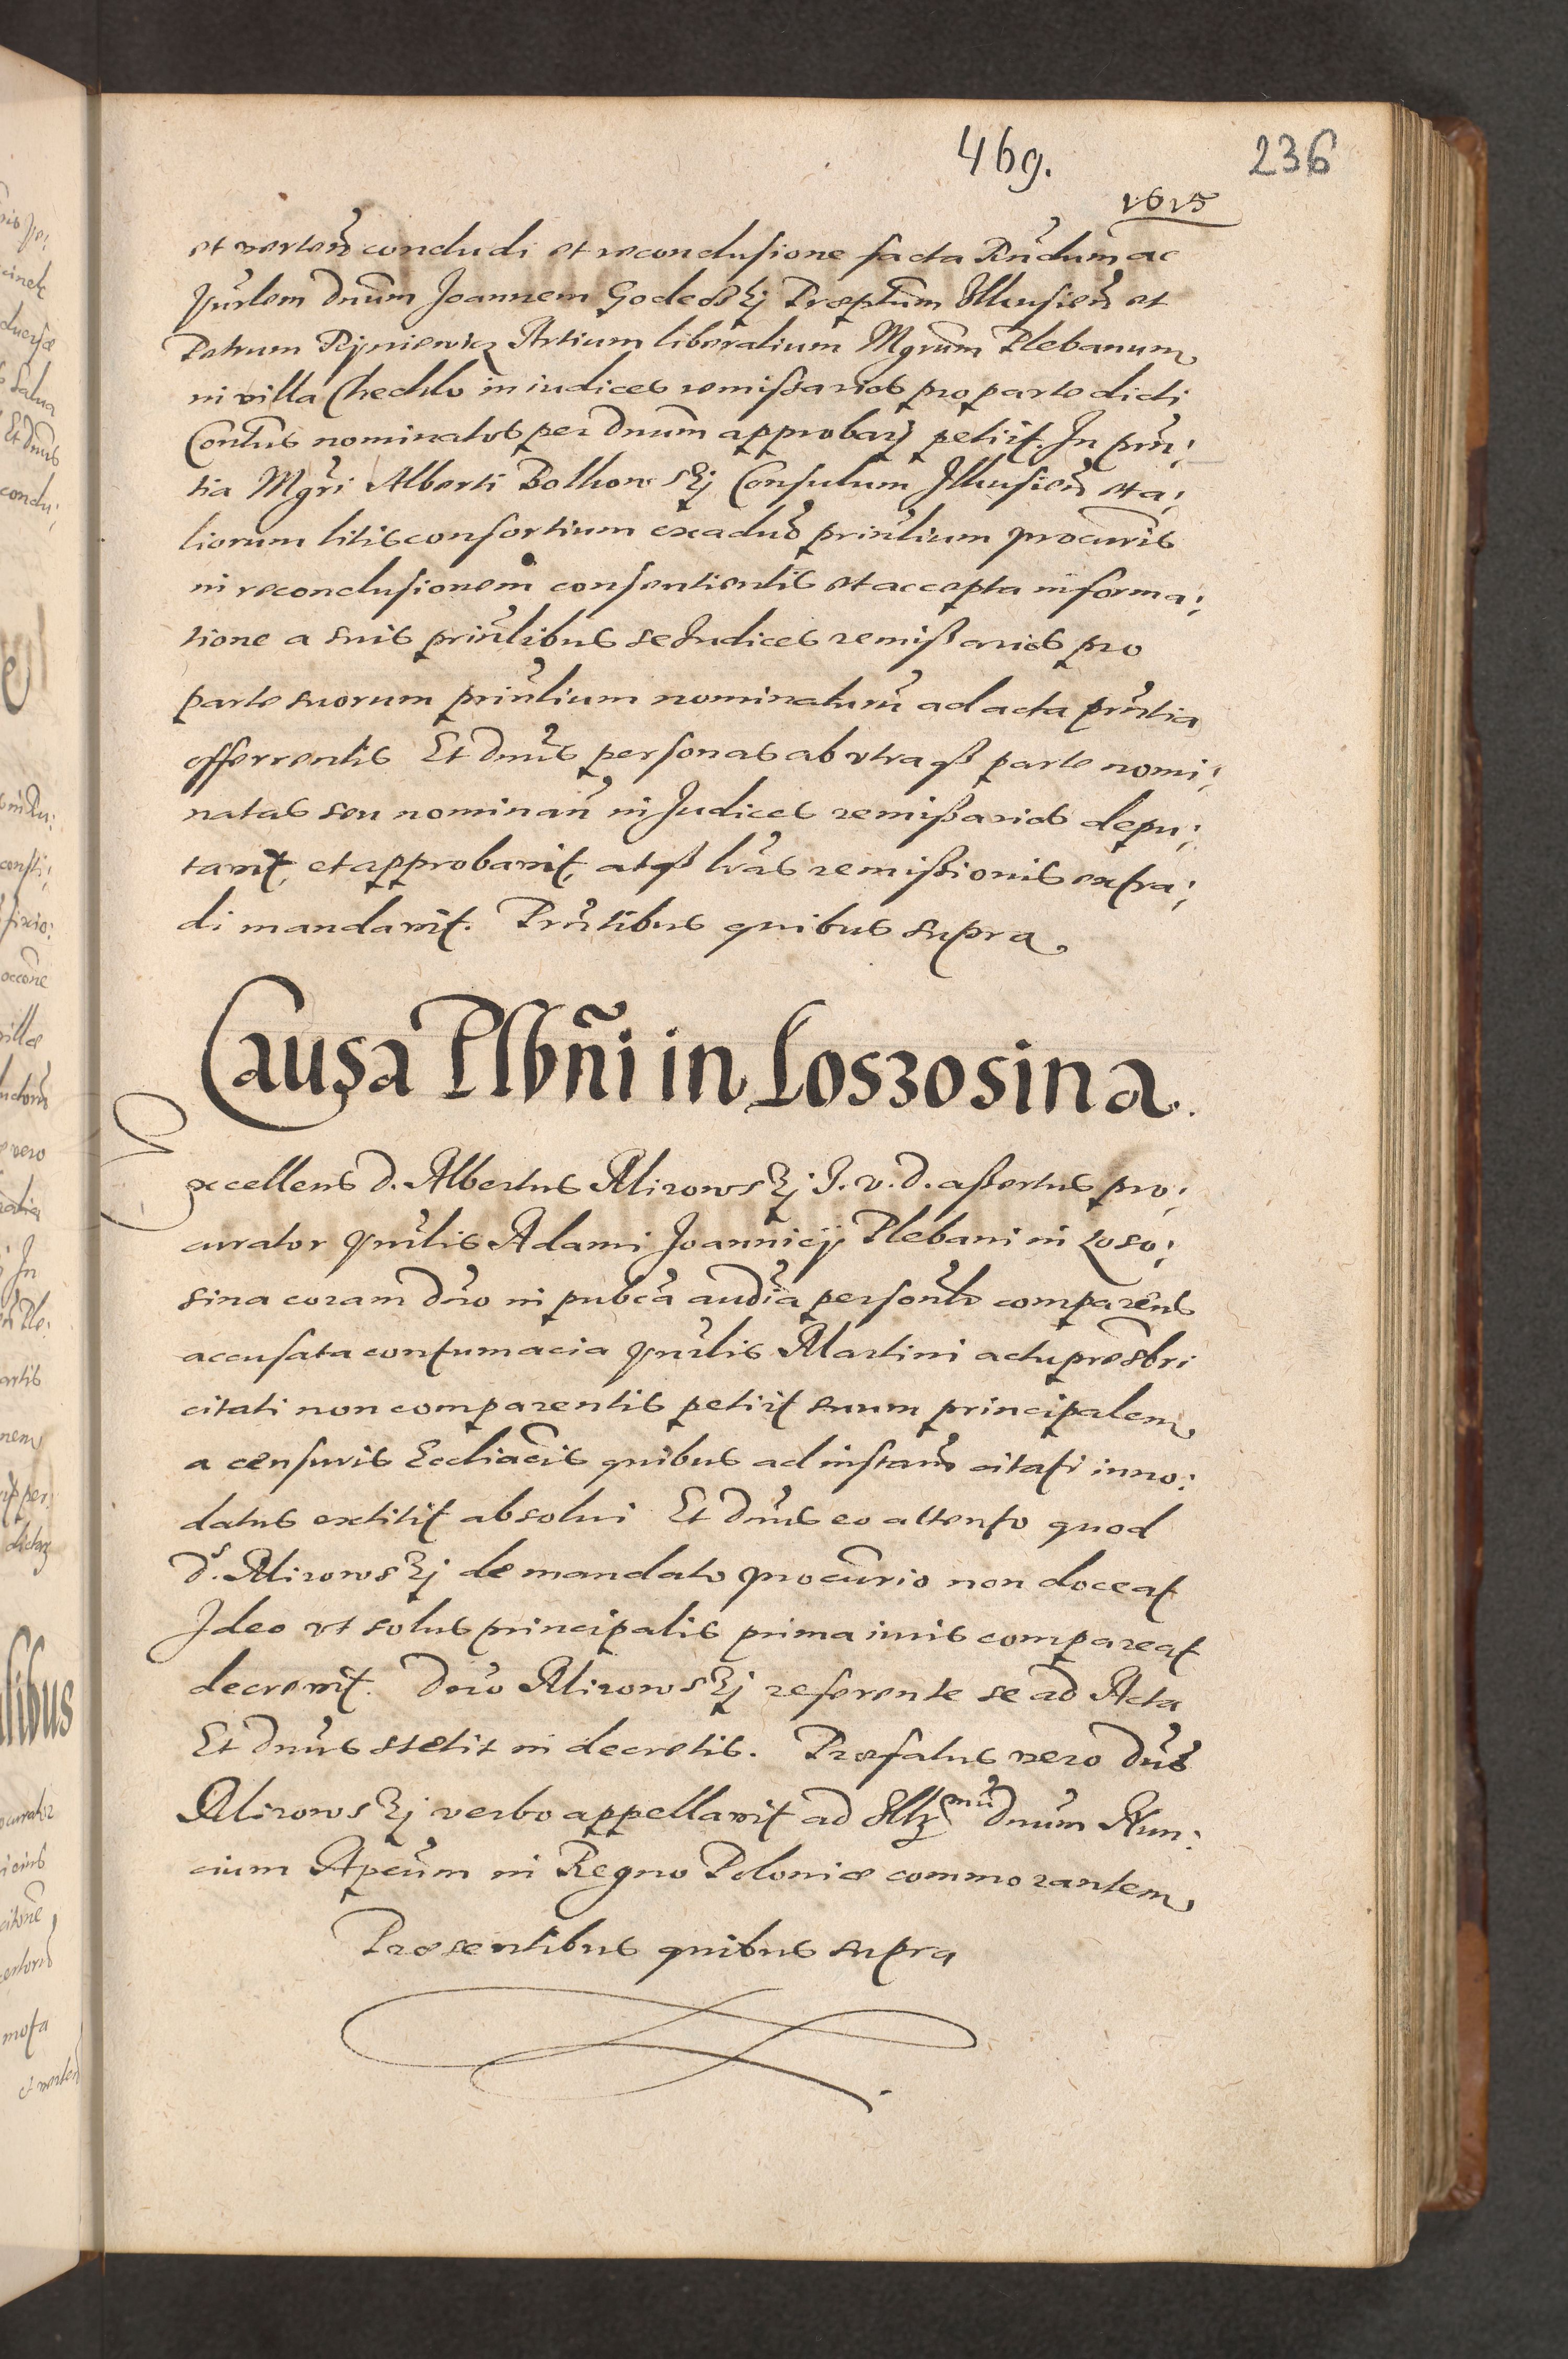 469.
236
1615
et verten̄ concludi et reconclusione facta Rn̄dum ac
Hn̄rlem Dnūm Joannem Godecskj Præptum Illusien̄ et
Petrum Rijniewicz Artium liberalium Mgrūm Plebanum
in villa Chechlo in iudices remissarios pro parte dicti
Contūs nominatos per Dnūm approbarj petiit. In prn̄:
tia Mgr̄i Alberti Bolhowskj Consulum Illusien̄ et a:
liorum litisconsortium ex adūo prin̄lium procūris
in reconclusionem consentientis et accepta informa:
tione a suis prin̄libus se Judices remissarios pro
parte suorum prin̄lium nominaturū ad acta prn̄tia
offerrentis Et Dnūs personas ab vtraq parte nomi:
natas seu nominan̄ in Judices remissarios depu:
tavit, et approbavit, atq lrās remissionis extra:
di mandavit. Prn̄tibus quibus supra
Causa Plbñi in Loszosina.
Excellens D. Albertus Mirowskj J. v. d. assertus pro:
curator Hn̄rlis Adami Joannicij Plebani in Loso:
sina coram Dnō in pubcā audiā personlr̄ comparens
accusata contumacia Hn̄rlis Martini actu presbri
citati non comparentis petiit suum principalem
a censuris Eccliacis quibus ad instanā citati inno:
datus extitit absolui Et Dnūs eo attento quod
Ds. Mirowskj de mandato procūrio non doceat
Ideo vt solus principalis prima iuris compareat
decrevit. Dnō Mirowskj referente se ad Acta
Et Dnūs stetit in decretis. Præfatus vero Dnūs
Mirowskj verbo appellavit ad Illmū Dnūm Nun:
cium Apcūm in Regno Poloniæ commorantem
Præsentibus quibus supra